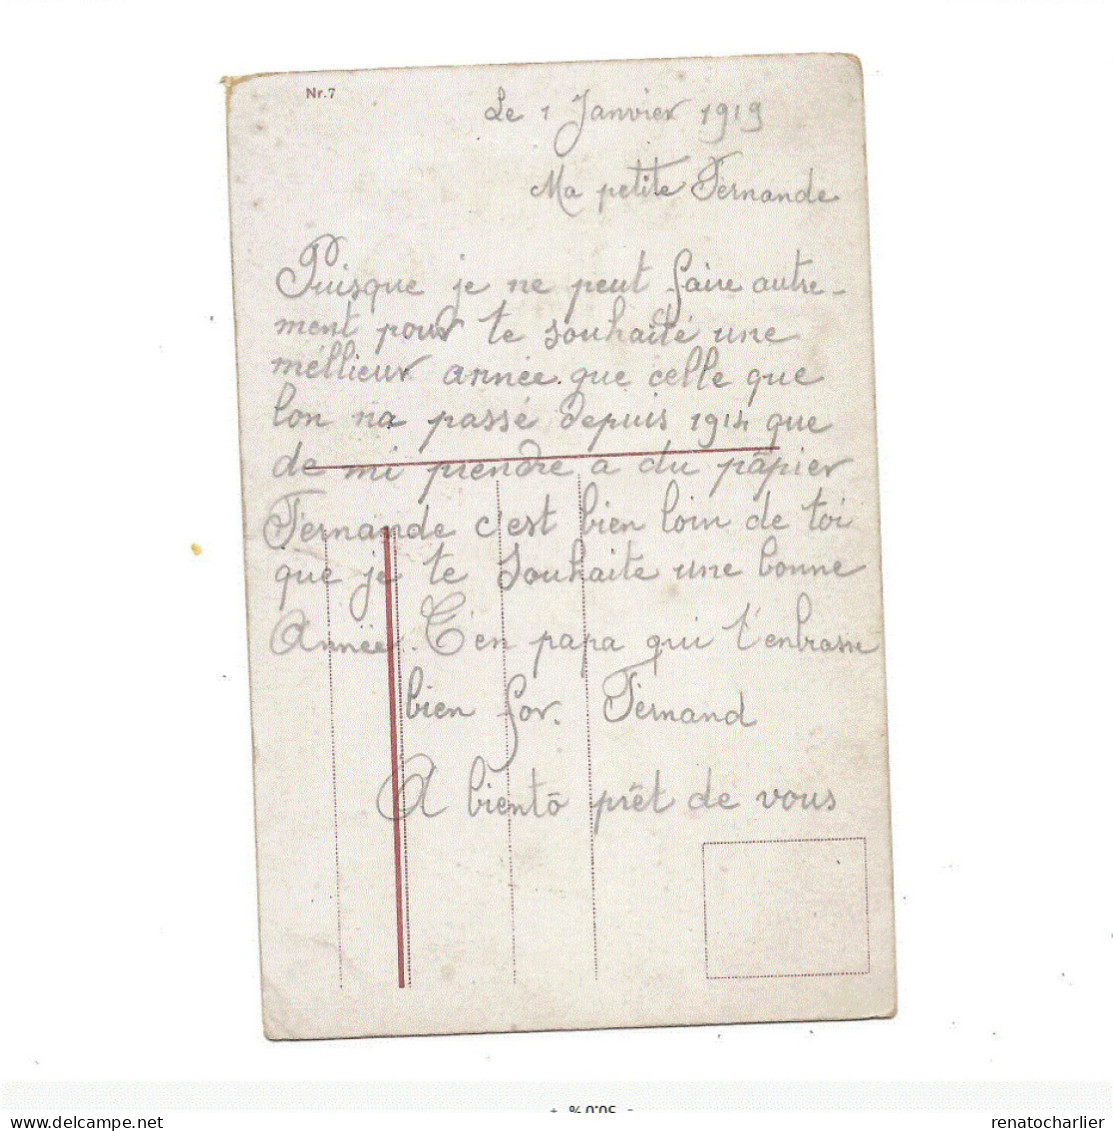 Nr.7
Le 1 Janvier 1919
Ma petite Fernande
Puisque je ne peut faire autre-
ment pour te souhaité une
méllieur année que celle que
lon na passé depuis 1914 que
de mi prendre a du papier
Fernande c'est bien loin de toi
que je te souhaite une bonne
Année. T'en papa qui t'enbrasse
bien for. Fernand
A bientô prêt de vous
50.0 %
renatocharlier